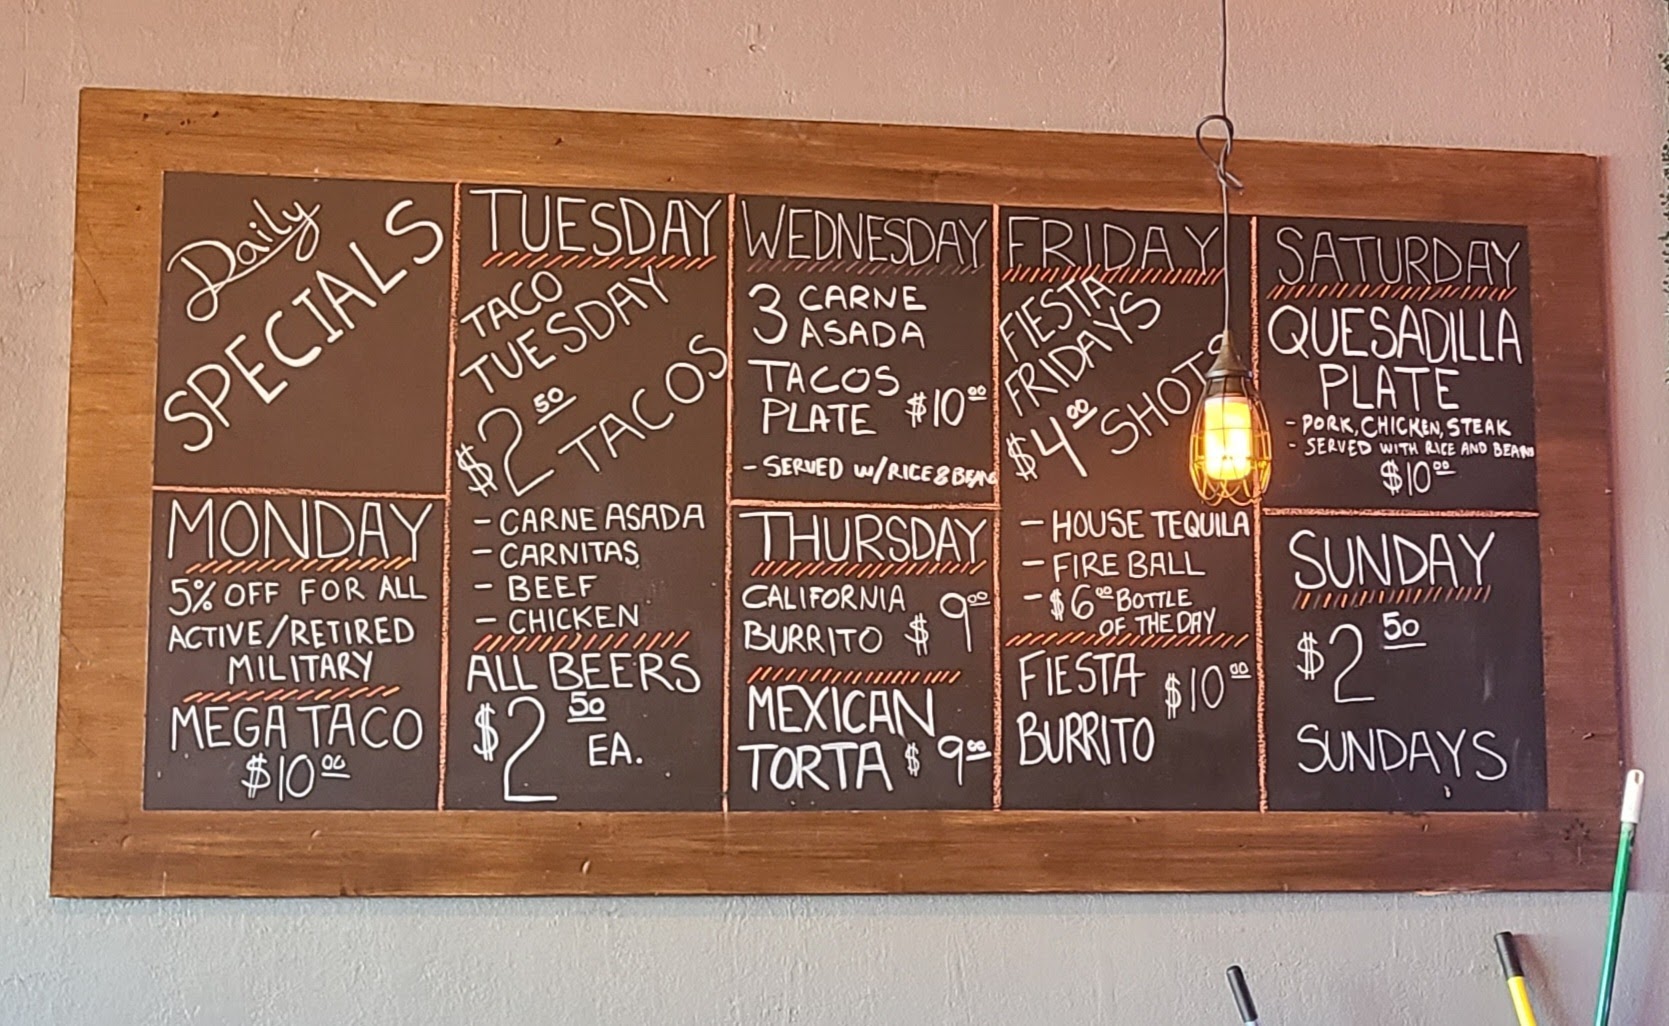 Daily
SPECIALS
MONDAY
5% OFF FOR ALL
ACTIVE/RETIRED
MILITARY
MEGA TACO
$10.00
TUESDAY
TACO
TUESDAY
$2.50 TACOS
- CARNE ASADA
- CARNITAS
- BEEF
- CHICKEN
ALL BEERS
$2.50 EA.
WEDNESDAY
3 CARNE
ASADA
TACOS
PLATE $10.00
- SERVED W/RICE & BEANS
THURSDAY
CALIFORNIA
BURRITO $9.00
MEXICAN
TORTA $9.00
FRIDAY
FIESTA
FRIDAYS
$4.00 SHOTS
- HOUSE TEQUILA
- FIRE BALL
- $6.00 BOTTLE
OF THE DAY
FIESTA $10.00
BURRITO
SATURDAY
QUESADILLA
PLATE
- PORK, CHICKEN, STEAK
- SERVED WITH RICE AND BEANS
$10.00
SUNDAY
$2.50
SUNDAYS